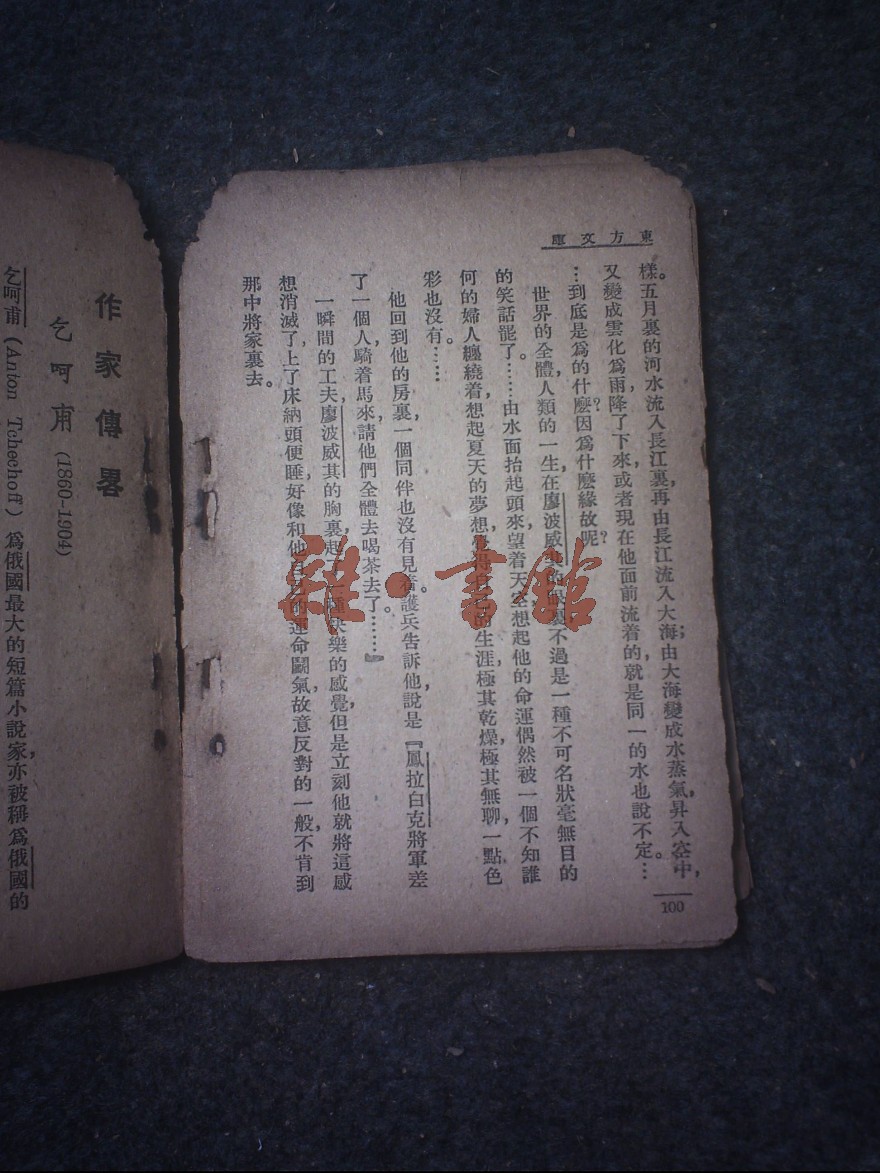 東方文庫
樣。五月裏的河水流入長江裏,再由長江流入大海;由大海變成水蒸氣,昇入空中,
又變成雲化爲雨,降了下來,或者現在他面前流着的,就是同一的水也說不定。…
…到底是爲的什麽?因爲什麽緣故呢?
世界的全體,人類的一生,在廖波威其的眼裏,不過是一種不可名狀毫無目的
的笑話罷了……由水面抬起頭來,望着天空,想起他的命運偶然被一個不知誰
何的婦人纏繞着,想起夏天的夢想,覺得自己的生涯,極其乾燥,極其無聊,一點色
彩也沒有。……
他回到他的房裏,一個同伴也沒有見着。護兵告訴他,說是『鳳拉白克將軍差
了一個人,騎着馬來,請他們全體去喝茶去了。……』
一瞬間的工夫,廖波威其的胸裏,起了一種快樂的感覺,但是立刻他就將這感
想消滅了,上了床納頭便睡,好像和他自己的運命鬭氣,故意反對的一般,不肯到
那中將家裏去。
100
作家傳畧
乞呵甫 (1860–1904)
乞呵甫 (Anton Tchechoff) 爲俄國最大的短篇小說家,亦被稱爲俄國的
雜·書館